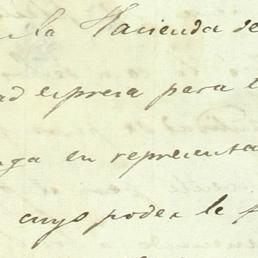 la Hacienda de
ad espresa para
nga en representa
cuyo poder le